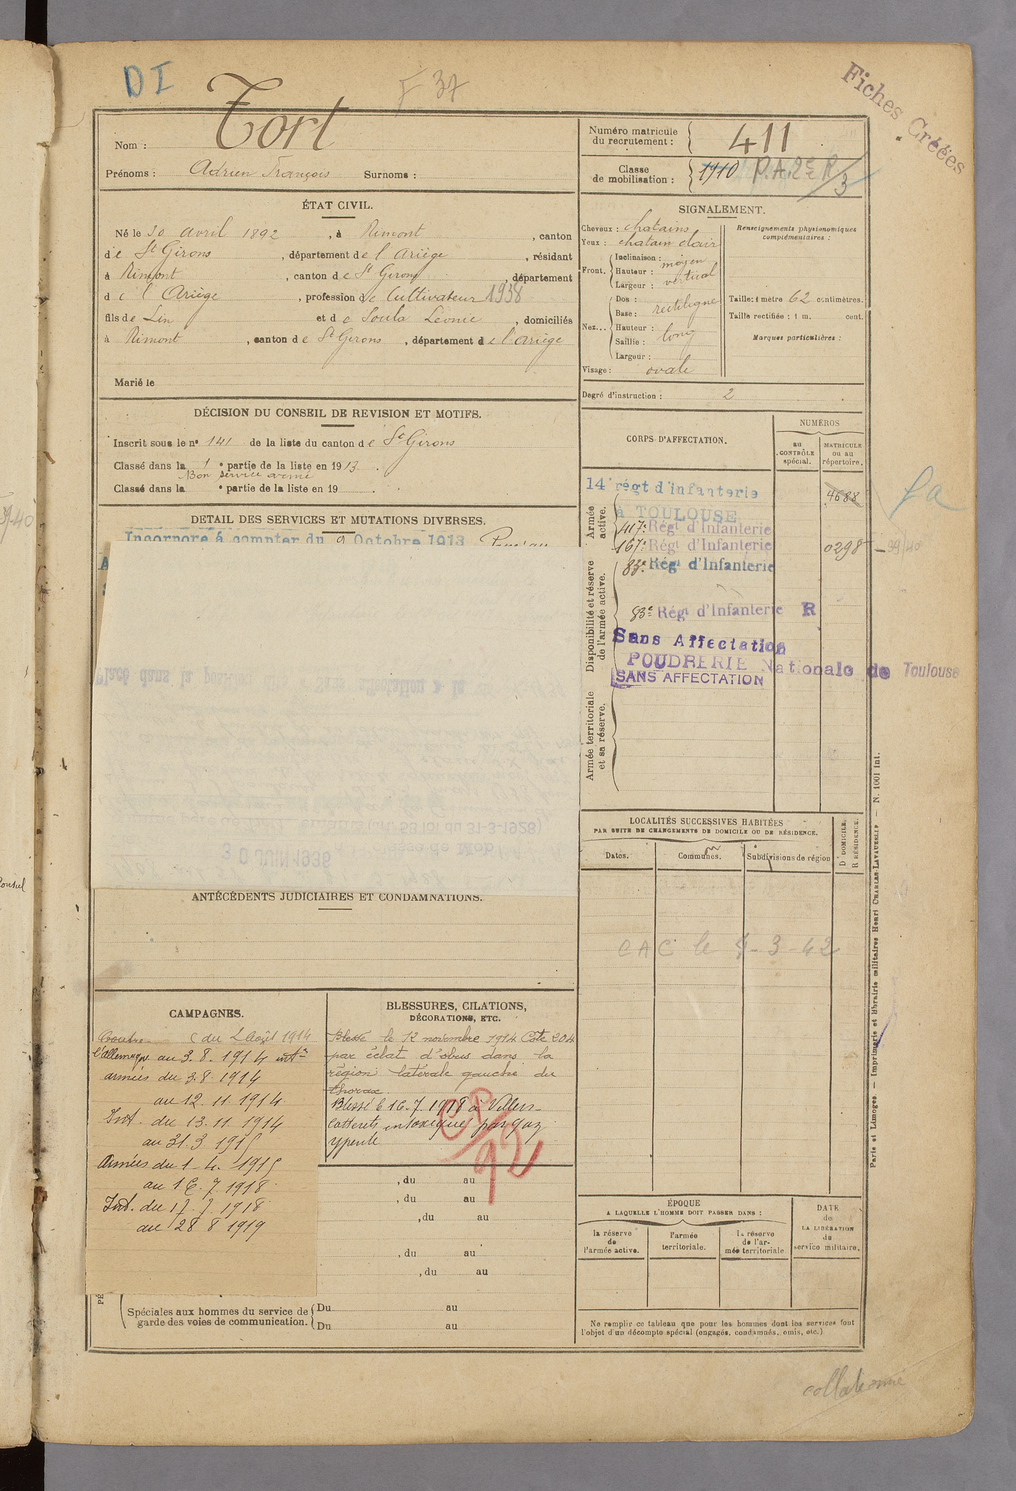 DI
F 37
Fiches Créées
Nom : Tort
Prénoms : Adrien François Surnoms :
Numéro matricule du recrutement : 411
Classe de mobilisation : 1910 P.A. 2e R/3
ÉTAT CIVIL.
Né le 20 avril 1892, à Rimont, canton
de St Girons, département de l'Ariège, résidant
à Rimont, canton de St Girons, département
de l'Ariège, profession de Cultivateur 1938
fils de Lin et de Soula Léonie, domiciliés
à Rimont, canton de St Girons, département de l'Ariège
Marié le
SIGNALEMENT.
Cheveux : chatains
Yeux : chatain clair
Front. Inclinaison : moyen
Hauteur : vertical
Largeur :
Nez... Dos : rectiligne
Base :
Hauteur : long
Saillie :
Largeur :
Visage : ovale
Renseignements physionomiques complémentaires :
Taille : 1 mètre 62 centimètres.
Taille rectifiée : 1 m. cent.
Marques particulières :
Degré d'instruction : 2
DÉCISION DU CONSEIL DE REVISION ET MOTIFS.
Inscrit sous le n° 141 de la liste du canton de St Girons
Classé dans la 1e partie de la liste en 1913.
Bon service armé
Classé dans la e partie de la liste en 19
DETAIL DES SERVICES ET MUTATIONS DIVERSES.
Incorporé à compter du 9 Octobre 1913
CORPS D'AFFECTATION.
NUMÉROS
au CONTRÔLE spécial.
MATRICULE ou au répertoire.
Armée active.
14e régt d'infanterie 4688
à TOULOUSE
117e Régt d'Infanterie
167e Régt d'Infanterie 0298
Disponibilité et réserve de l'armée active.
83e Régt d'Infanterie
83e Régt d'Infanterie R
Sans Affectation
POUDRERIE Nationale de Toulouse
SANS AFFECTATION
Armée territoriale et sa réserve.
LOCALITÉS SUCCESSIVES HABITÉES
PAR SUITE DE CHANGEMENTS DE DOMICILE OU DE RÉSIDENCE.
Dates.
Communes.
Subdivisions de région
D DOMICILE.
R RÉSIDENCE.
CAC le 7-3-42
30 JUIN 1936
ANTÉCÉDENTS JUDICIAIRES ET CONDAMNATIONS.
CAMPAGNES.
Contre l'Allemagne du 2 Août 1914
au 3.8.1914 intre
armées du 3.8.1914
au 12.11.1914
Int. du 13.11.1914
au 31.3.1915
Armées du 1.4.1915
au 16.7.1918
Int. du 17.7.1918
au 28 8 1919
BLESSURES, CITATIONS,
DÉCORATIONS, ETC.
Blessé le 12 novembre 1914 Côte 204
par éclat d'obus dans la
région latérale gauche du
thorax
Blessé le 16.7.1918 à Villers-
Cotterets intoxiqué par gaz
ypérite
CP/92
, du au
, du au
, du au
, du au
, du au
Spéciales aux hommes du service de garde des voies de communication.
Du au
Du au
ÉPOQUE
A LAQUELLE L'HOMME DOIT PASSER DANS :
la réserve de l'armée active.
l'armée territoriale.
la réserve de l'armée territoriale
DATE de LA LIBÉRATION du service militaire.
Ne remplir ce tableau que pour les hommes dont les services font
l'objet d'un décompte spécial (engagés, condamnés, omis, etc.)
Paris et Limoges. — Imprimerie et librairie militaires Henri CHARLES-LAVAUZELLE — N. 1001 int.
collationné